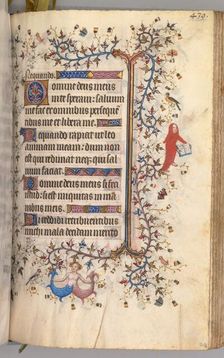 479.
sequendo.
Domine deus meus
in te speraui: saluum
me fac ex omnibus persequen
tibus me et libera me.
Nequando rapiat ut leo
animam meam: dum non
est qui redimat neqz qui sal
uum faciat.
Domine deus meus si feci
istud: si est iniquitas in ma
nibus meis.
Si reddidi retribuentibus
michi mala: decidam merito